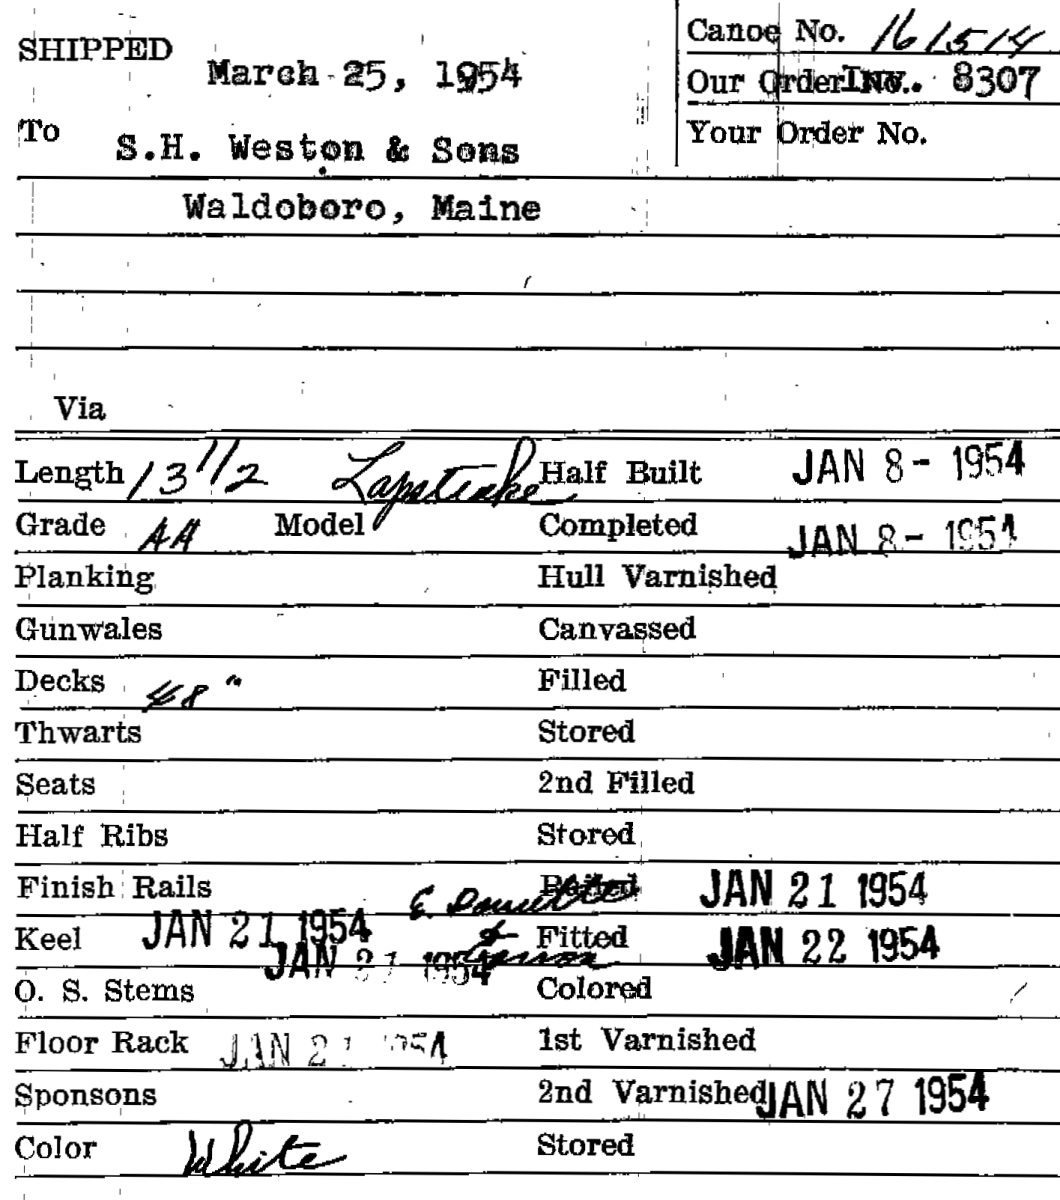 SHIPPED March 25, 1954
Canoe No. 161514
Our Order Inv. 8307
To S.H. Weston & Sons
Your Order No.
Waldoboro, Maine
Via
Length 13 1/2 Lapstrake Half Built JAN 8 - 1954
Grade AA Model Completed JAN 8 - 1954
Planking Hull Varnished
Gunwales Canvassed
Decks 48" Filled
Thwarts Stored
Seats 2nd Filled
Half Ribs Stored
Finish Rails E. Railed JAN 21 1954
Keel JAN 21 1954 & Fitted JAN 22 1954
JAN 21 1954
O. S. Stems Colored
Floor Rack JAN 21 1954 1st Varnished
Sponsons 2nd Varnished JAN 27 1954
Color White Stored